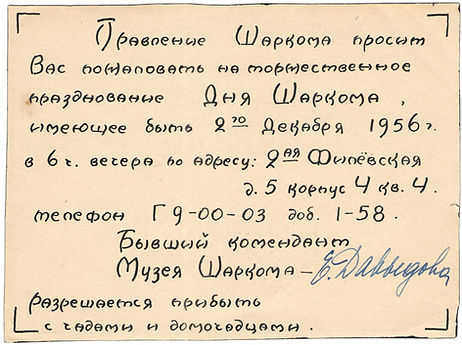 Правление Шаркома просит
Вас пожаловать на торжественное
празднование Дня Шаркома,
имеющее быть 2го Декабря 1956 г.
в 6 ч. вечера по адресу: 2ая Филёвская
д. 5 корпус 4 кв. 4.
телефон Г 9-00-03 доб. 1-58.
Бывший комендант
Музея Шаркома – Е. Давыдова
Разрешается прибыть
с чадами и домочадцами.